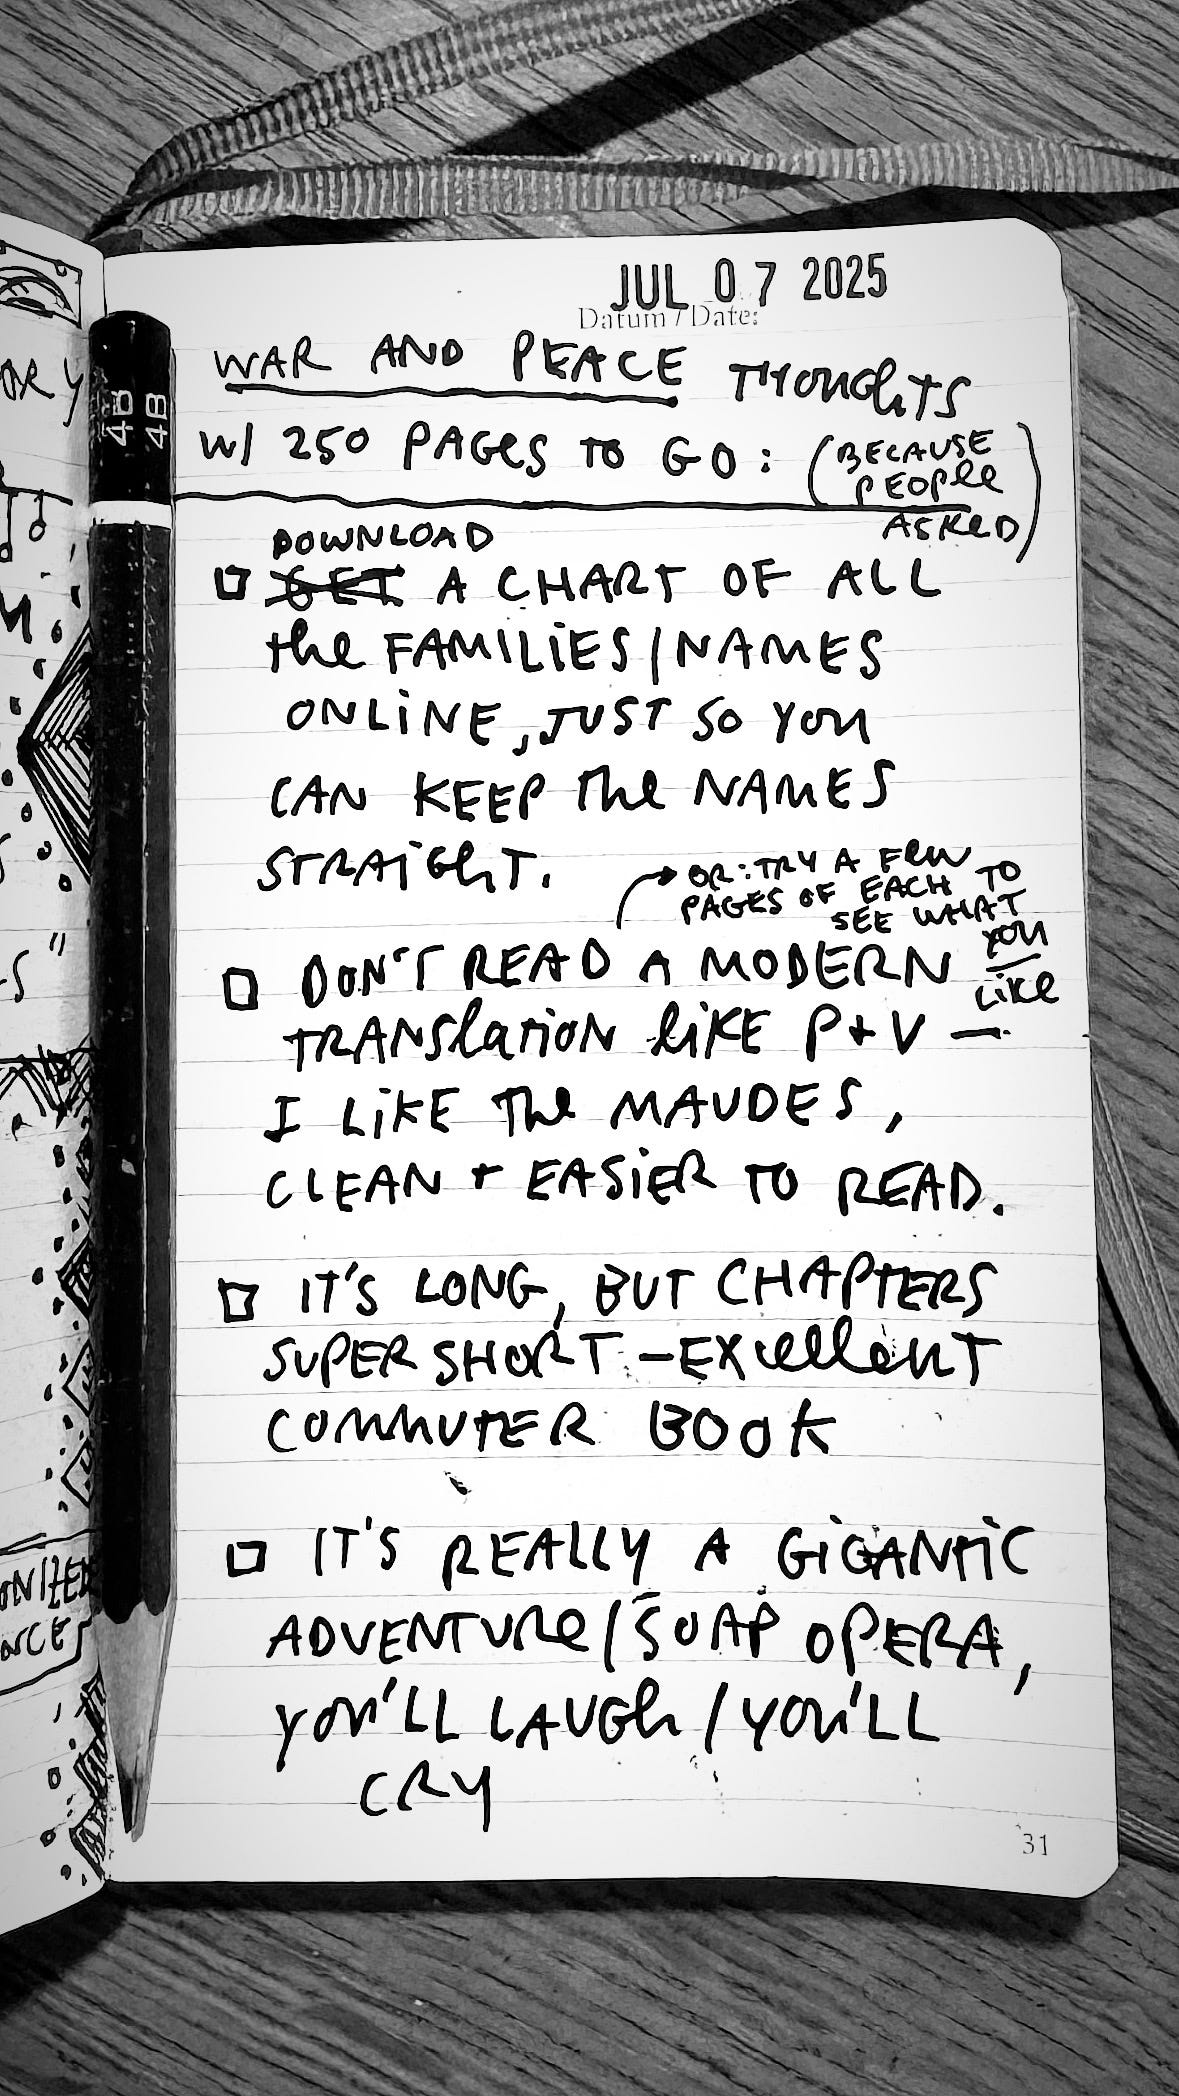 JUL 07 2025
Datum / Date:
WAR AND PEACE THOUGHTS
W/ 250 PAGES TO GO: (BECAUSE
PEOPLE
ASKED)
DOWNLOAD
GET A CHART OF ALL
the FAMILIES/NAMES
ONLINE, JUST SO YOU
CAN KEEP THE NAMES
STRAIGHT.
OR: TRY A FEW
PAGES OF EACH TO
SEE WHAT
YOU
LIKE
DON'T READ A MODERN
TRANSLATION LIKE P+V —
I LIKE THE MAUDES,
CLEAN + EASIER TO READ.
IT'S LONG, BUT CHAPTERS
SUPER SHORT – EXCELLENT
COMMUTER BOOK
IT'S REALLY A GIGANTIC
ADVENTURE/SOAP OPERA,
YOU'LL LAUGH/YOU'LL
CRY
31
4B
4B